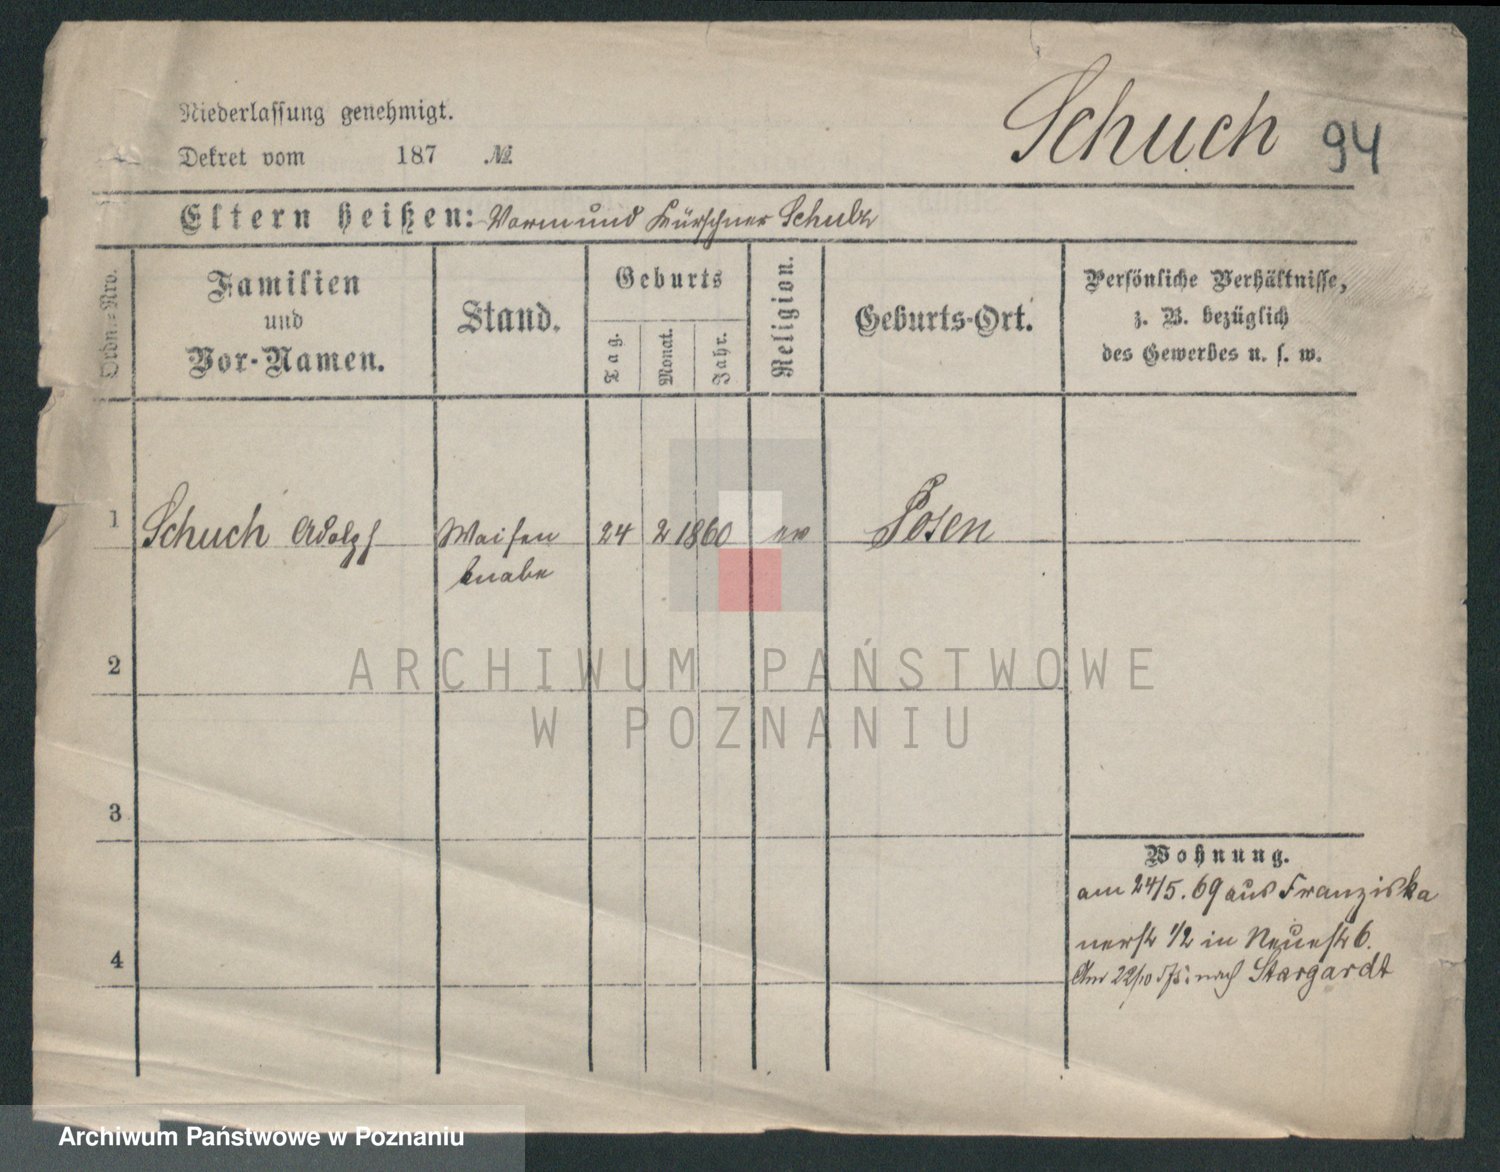 Niederlassung genehmigt.
Dekret vom 187 №
Schuch 94
Eltern heißen: Vormund Kürschner Schulz
Ordn.-Nro.
Familien
und
Vor-Namen.
Stand.
Geburts
Tag.
Monat.
Jahr.
Religion.
Geburts-Ort.
Persönliche Verhältnisse,
z. B. bezüglich
des Gewerbes u. s. w.
1 Schuch Adolph Waisen 24 2 1860 ev Posen
knabe
2
ARCHIWUM PAŃSTWOWE
W POZNANIU
3
Wohnung.
am 24/5. 69 aus Franziska
nerstr 1/2 in Neuestr 6.
4
Am 22/10 ds. nach Stargardt
Archiwum Państwowe w Poznaniu